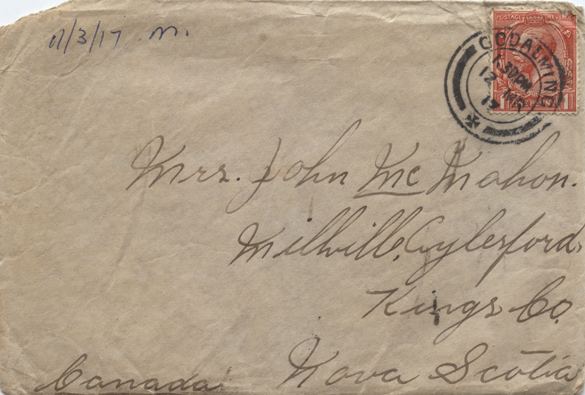 11/3/17 . M.
POSTAGE
GODALMING
1.30 PM
12 MR
17
Mrs. John McMahon.
Milvill, Aylesford,
Kings Co.
Nova Scotia
Canada